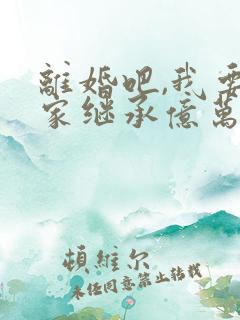 離婚吧,我要
家继承億萬
頓維尔
未经同意禁止转载